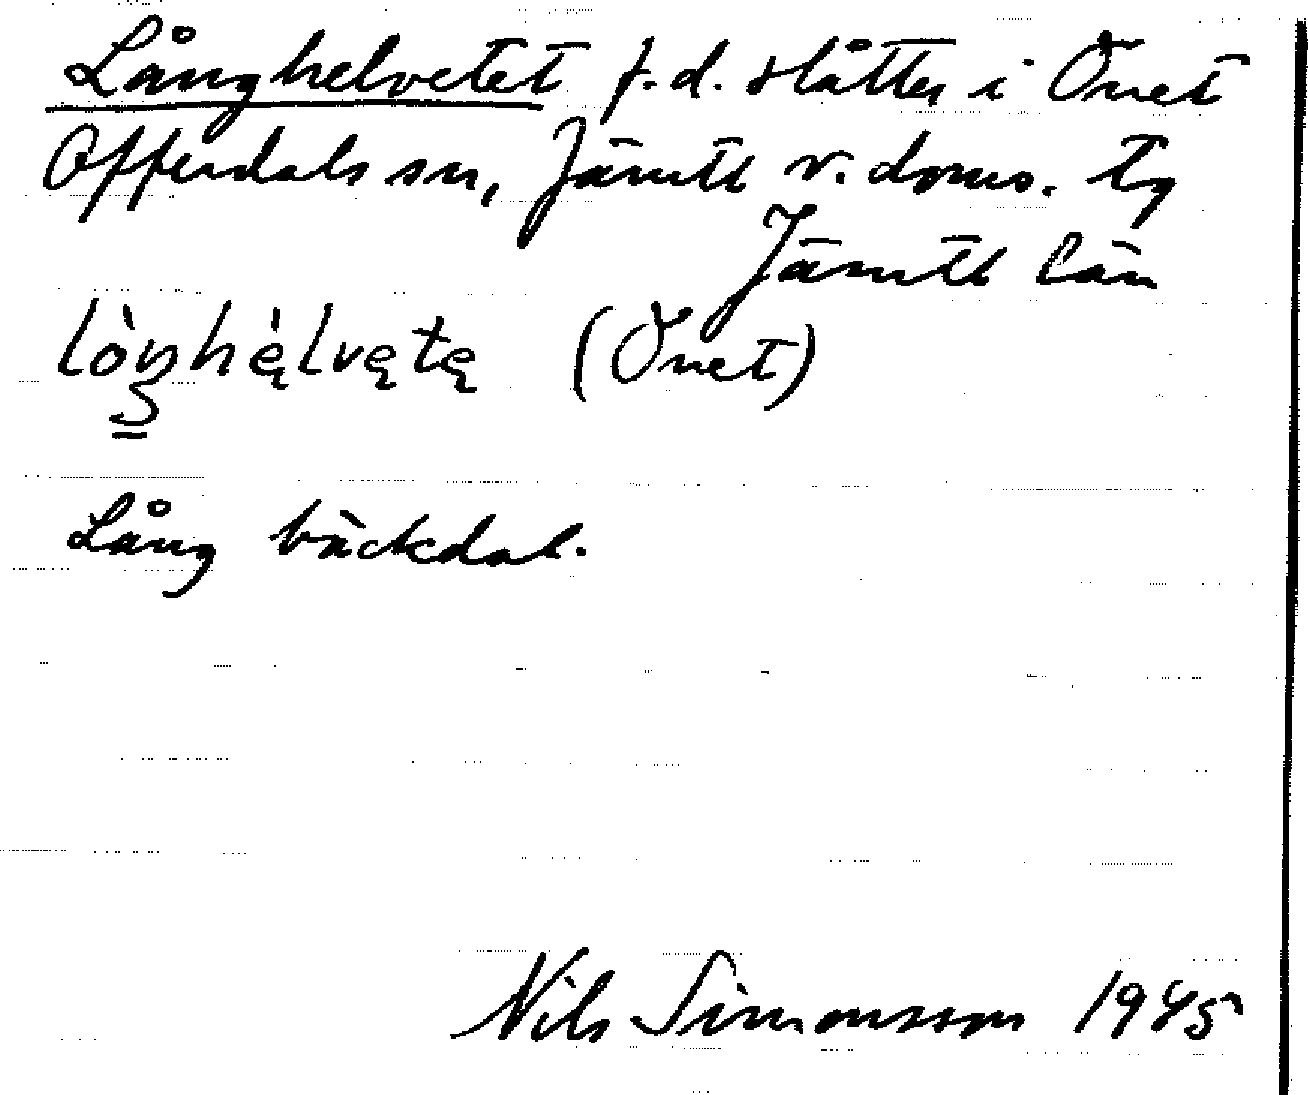 Långhelvetet f.d. slåtter i Önet
Offerdals sn, Jämtl v. doms. tg
Jämtl län
lòŋhèlvętę (Önet)
Lång bäckdal.
Nils Simonsson 1945